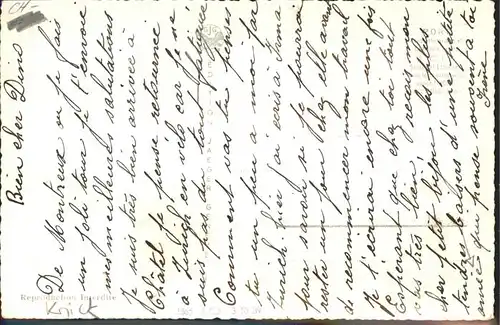 CH-
Bien cher Dino
De Montreux où je fais
un joli tour je t'envoie
mes meilleures salutations
Je suis très bien arrivée à
Châtel. Je pense retourner
à Zurich en vélo car je ne
suis pas du tout fatiguée
Comment vas tu, penses
tu un peu à moi j'ai
écris à Irma
pour savoir si je pourrai
rester un jour chez elle avant
de recommencer mon travail
Je t'écrirai encore une fois
Espérant que chez toi tout
va très bien, reçois mon
cher petit bijou les plus
tendres baisers d'une petite
amie qui pense souvent à toi
Reproduction Interdite